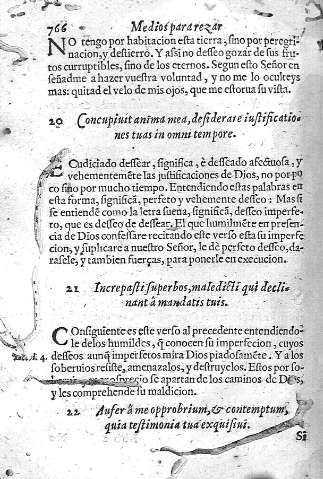 766 Medios para rezar
NO tengo por habitacion esta tierra, sino por peregri-
nacion, y destierro. Y assi no desseo gozar de sus fru-
tos curruptibles, sino de los eternos. Segun esto Señor en
señadme a hazer vuestra voluntad, y no me lo oculteys
mas: quitad el velo de mis ojos, que me estorua su vista.
20 Concupiuit anima mea, desiderare iustificatio-
nes tuas in omni tempore.
Cudiciado dessear, significa, è desseado afectuosa, y
vehementemēte las justificaciones de Dios, no por po
co sino por mucho tiempo. Entendiendo estas palabras en
esta forma, significā, perfeto y vehemente desseo: Mas si
se entiendē como la letra suena, significā, desseo imperfe-
to, que es desseo de dessear. El que humilmēte en presen-
cia de Dios confessare recitando este verso esta su imperfe
cion, y suplicare a nuestro Señor, le dè perfeto desseo, da-
rasele, y tambien fuerças, para ponerle en execucion.
21 Increpasti superbos, maledicti qui decli-
nant à mandatis tuis.
COnsiguiente es este verso al precedente entendiendo-
le delos humildes, q̄ conocen su imperfecion, cuyos
desseos aunq̄ imperfetos mira Dios piadosamēte. Y a los
4.
soberuios resiste, amenazalos, y destruyelos. Estos por so-
se apartan de los caminos de Dios,
y les comprehende su maldicion.
22 Aufer à me opprobrium, & contemptum,
quia testimonia tua exquisiui.
Si